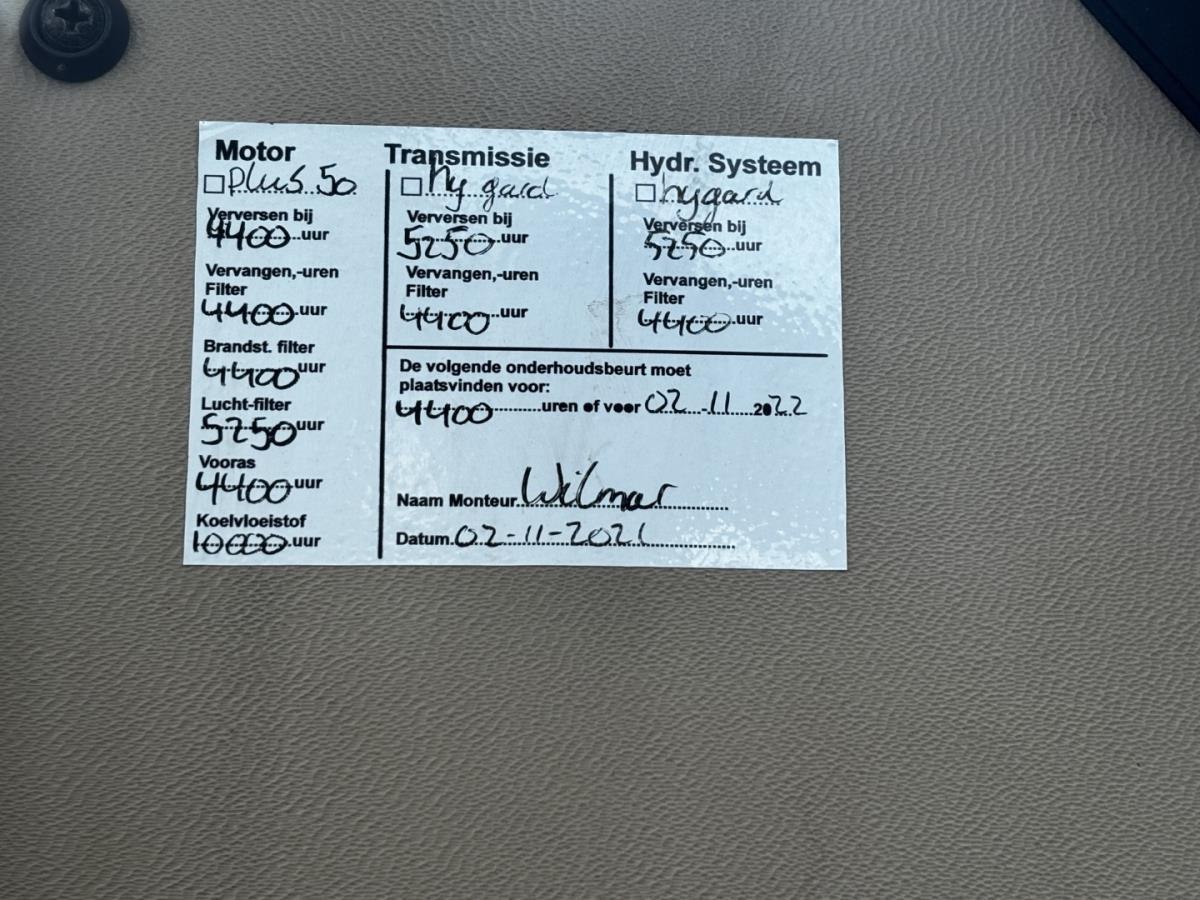 Motor
plus 50
Verversen bij
4400 uur
Vervangen,-uren
Filter
4400 uur
Brandst. filter
4400 uur
Lucht-filter
5250 uur
Vooras
4400 uur
Koelvloeistof
10000 uur
Transmissie
hy gard
Verversen bij
5250 uur
Vervangen,-uren
Filter
4400 uur
Hydr. Systeem
hygard
Verversen bij
5250 uur
Vervangen,-uren
Filter
4400 uur
De volgende onderhoudsbeurt moet
plaatsvinden voor:
4400 uren of voor 02-11 2022
Naam Monteur Wilmar
Datum 02-11-2021